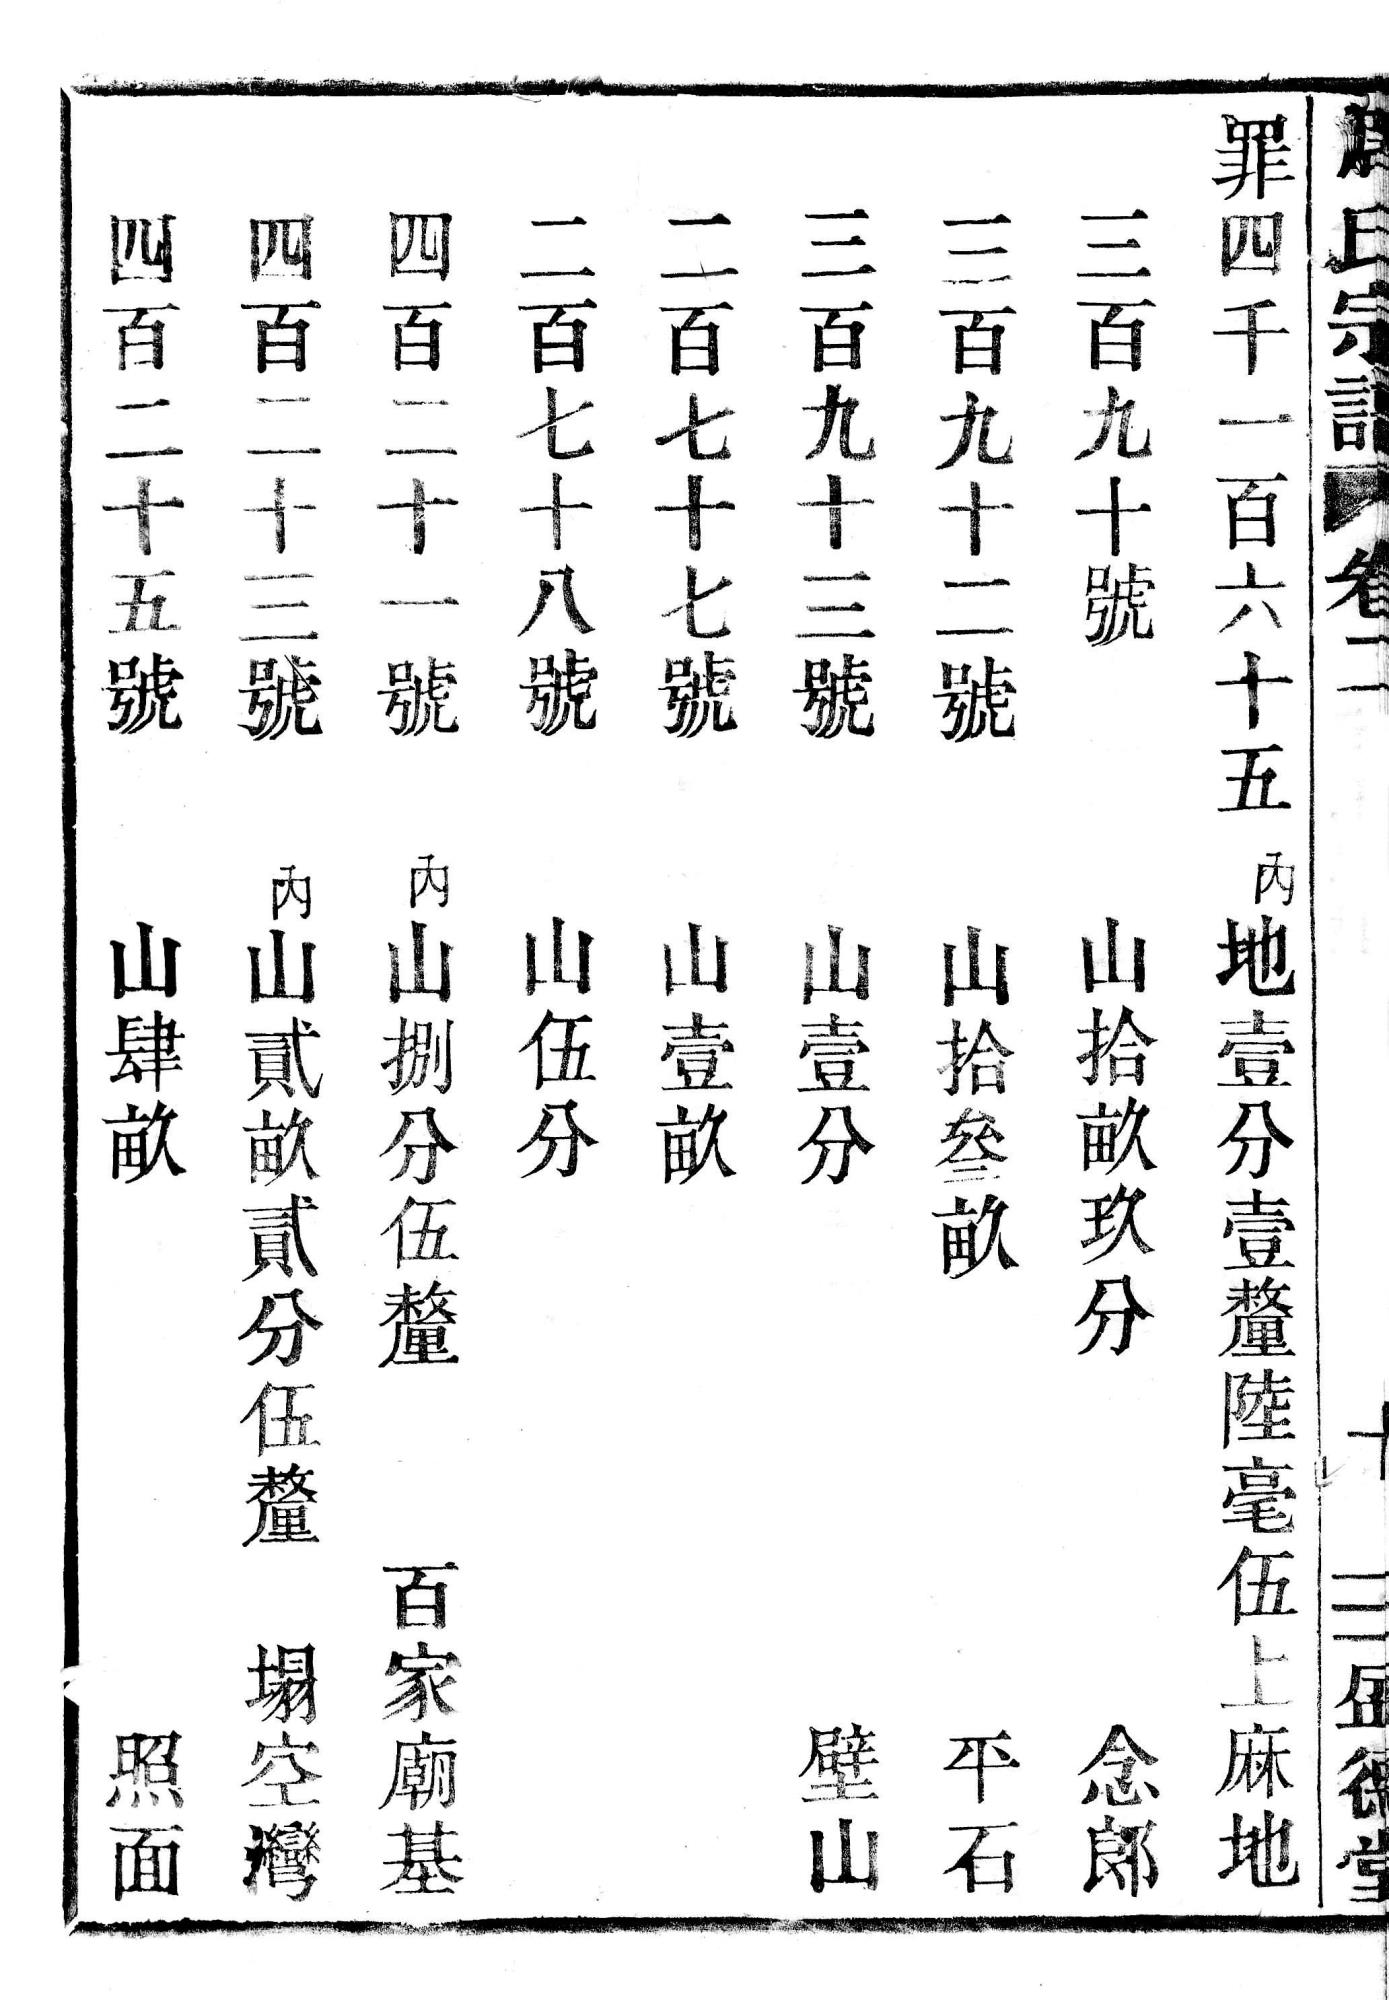 氏宗譜 卷二 十 三盛德堂
罪四千一百六十五 內地壹分壹釐陸毫伍上麻地
三百九十號 山拾畝玖分 念郎
三百九十二號 山拾叄畝 平石
三百九十三號 山壹分 壁山
二百七十七號 山壹畝
二百七十八號 山伍分
四百二十一號 內山捌分伍釐 百家廟基
四百二十三號 內山貳畝貳分伍釐 塌空灣
四百二十五號 山肆畝 照面